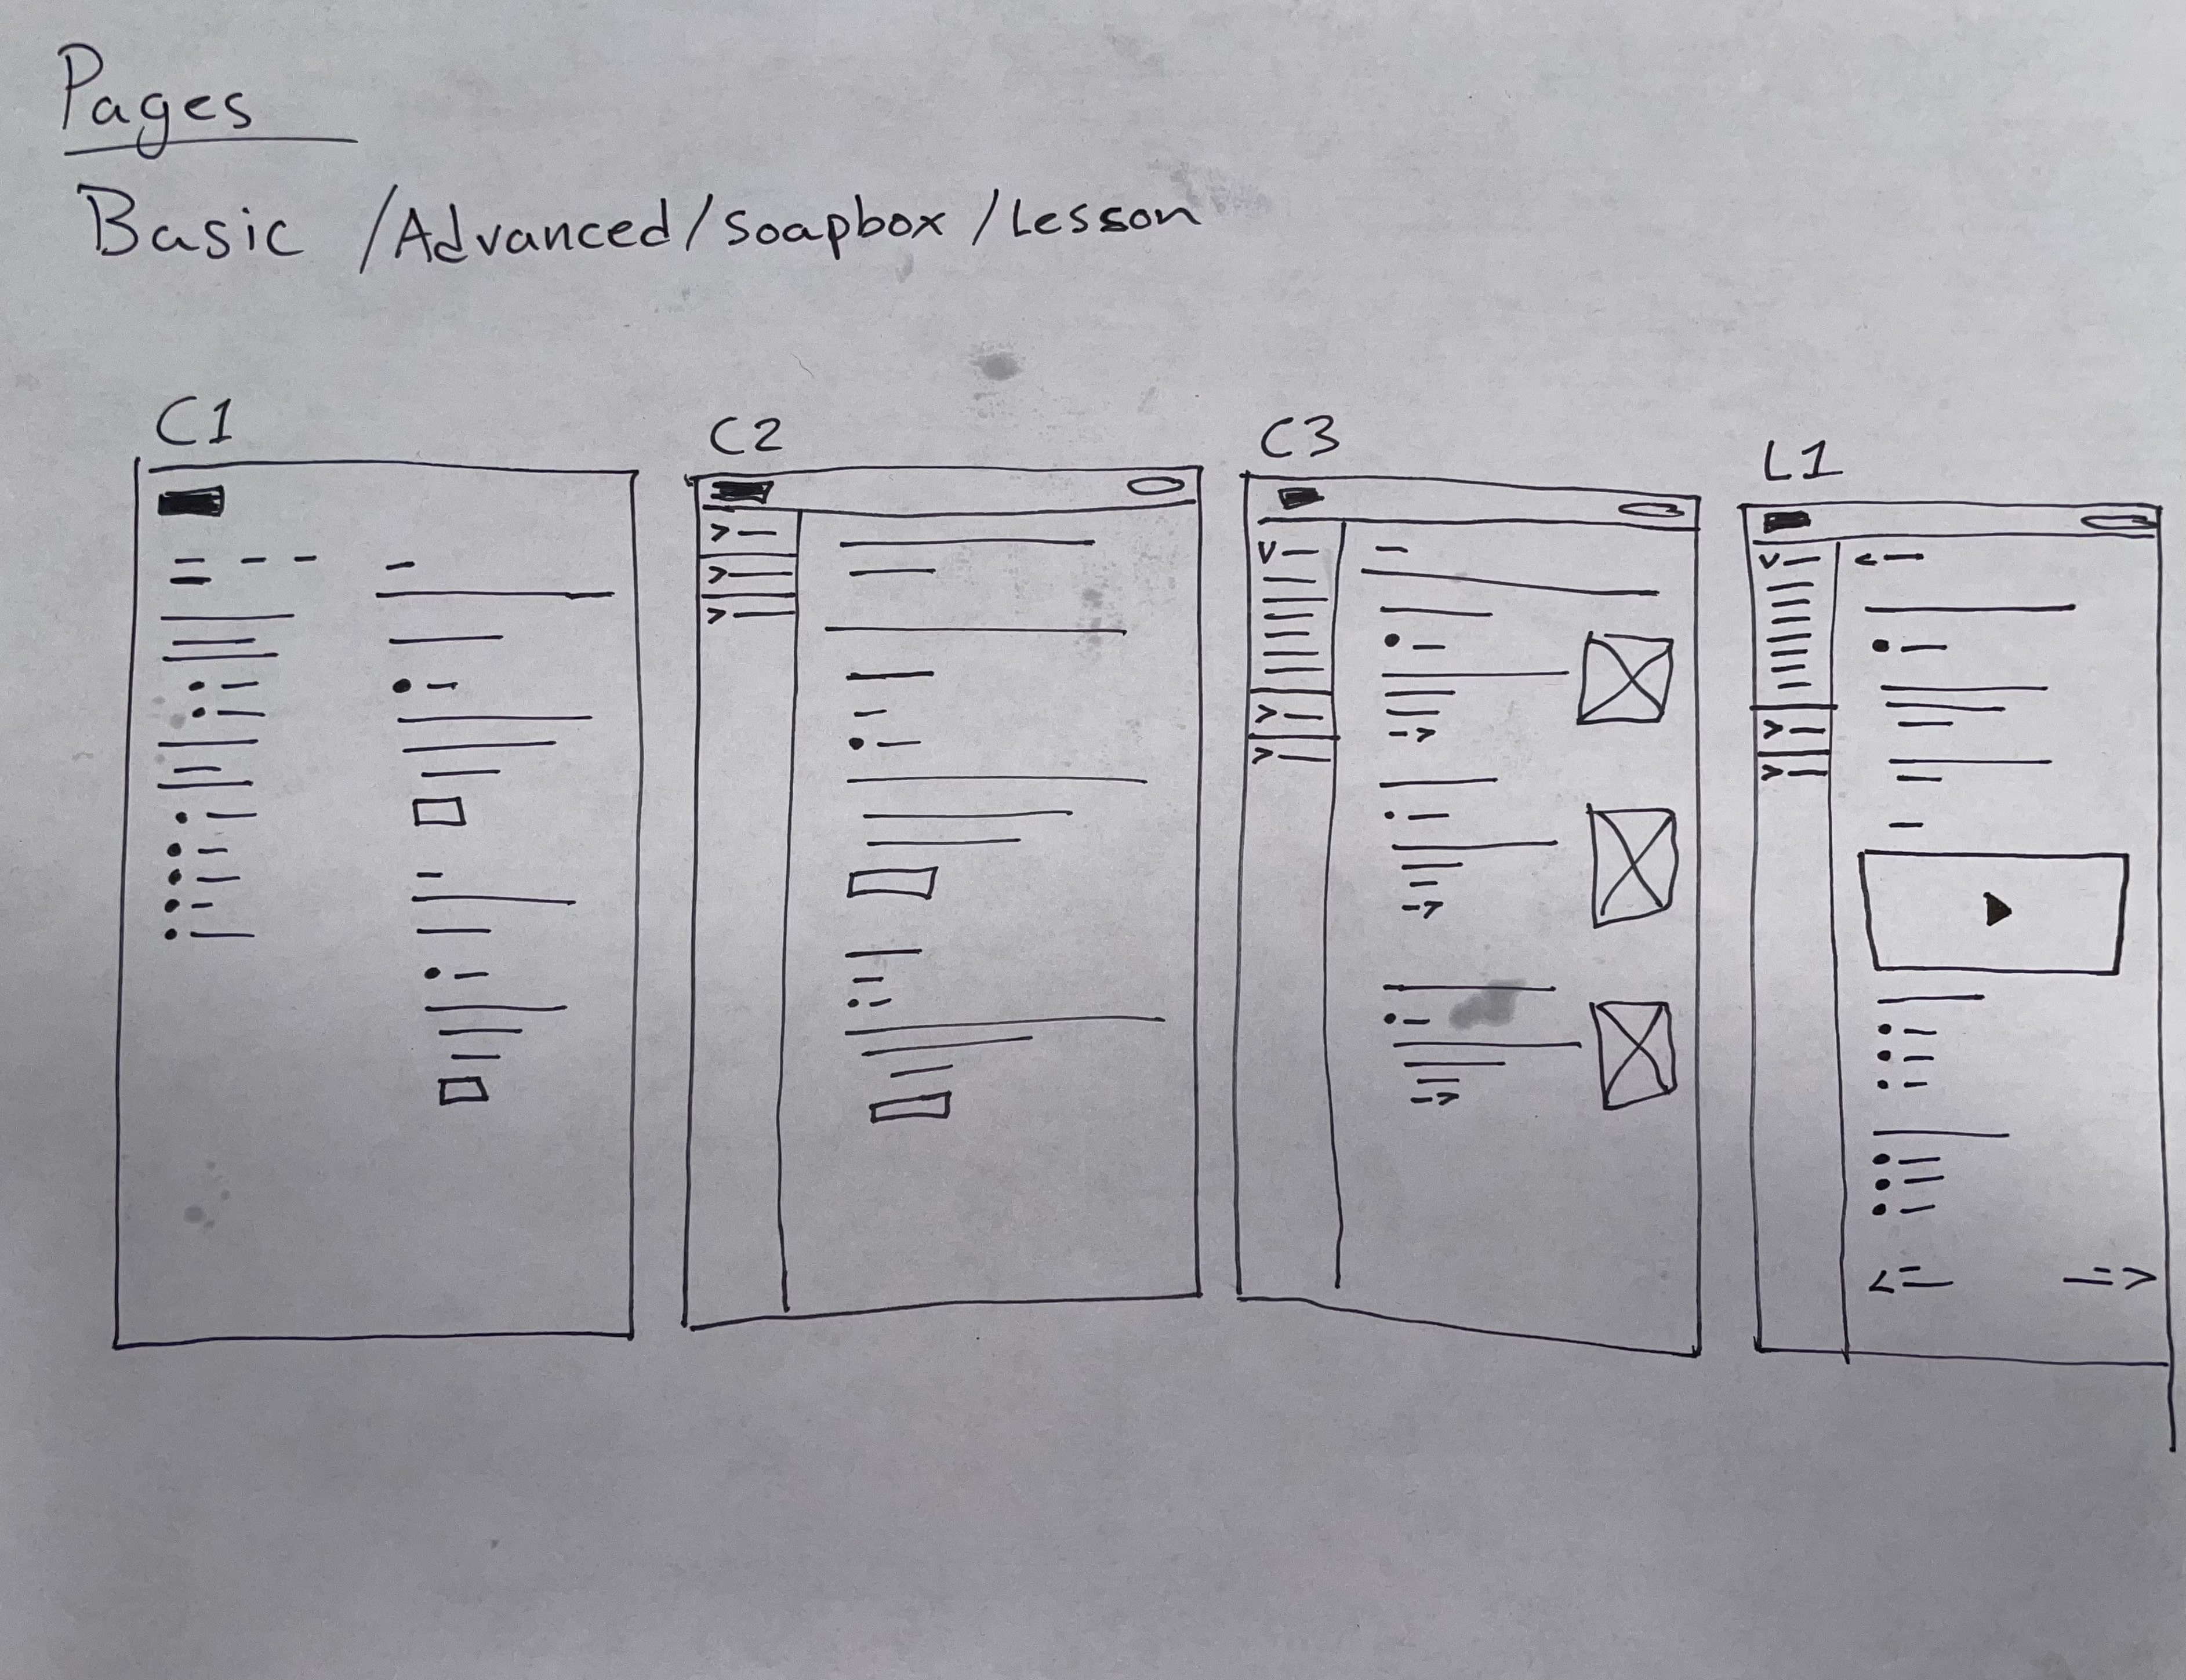 Pages
Basic /Advanced/soapbox/Lesson
C1
C2
C3
L1